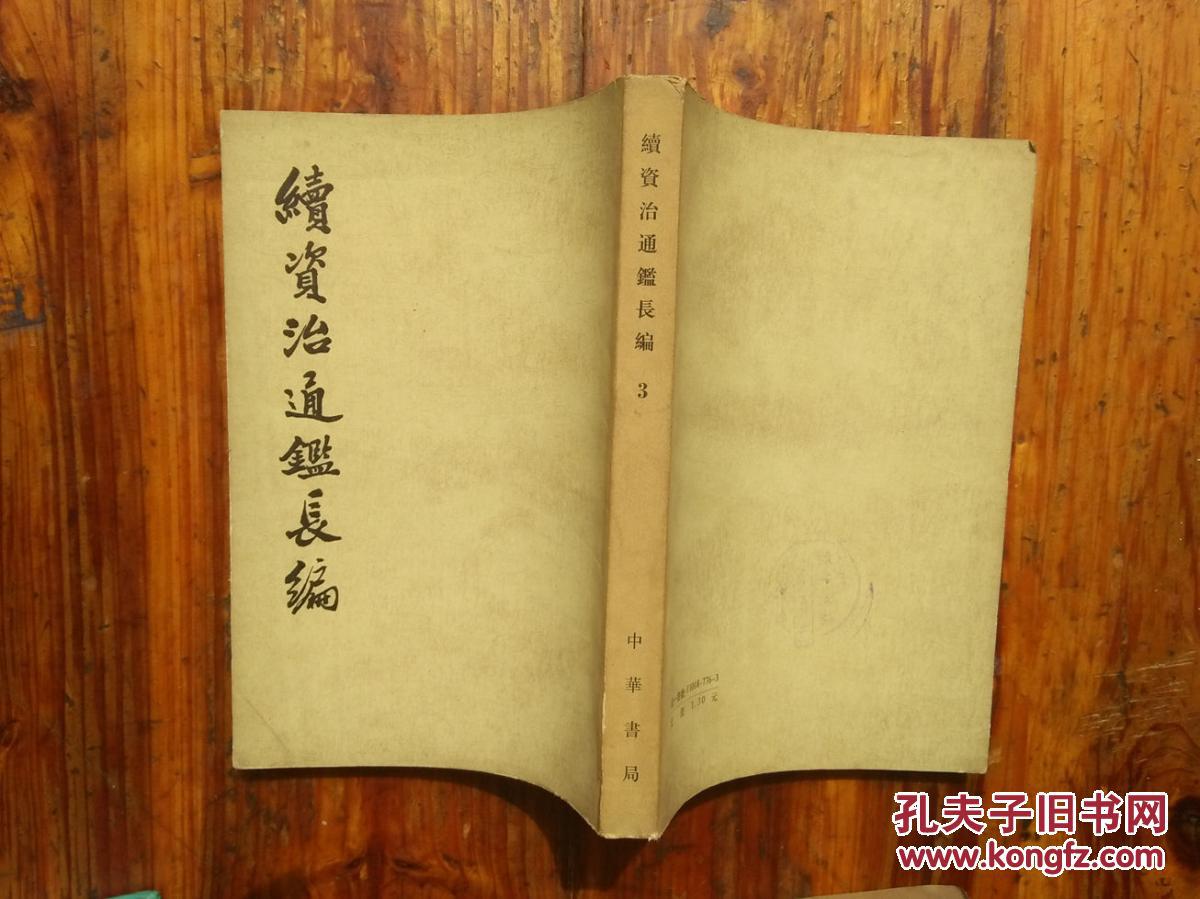 續資治通鑑長編
續資治通鑑長編 3
中華書局
1.30 元
孔夫子旧书网
www.kongfz.com